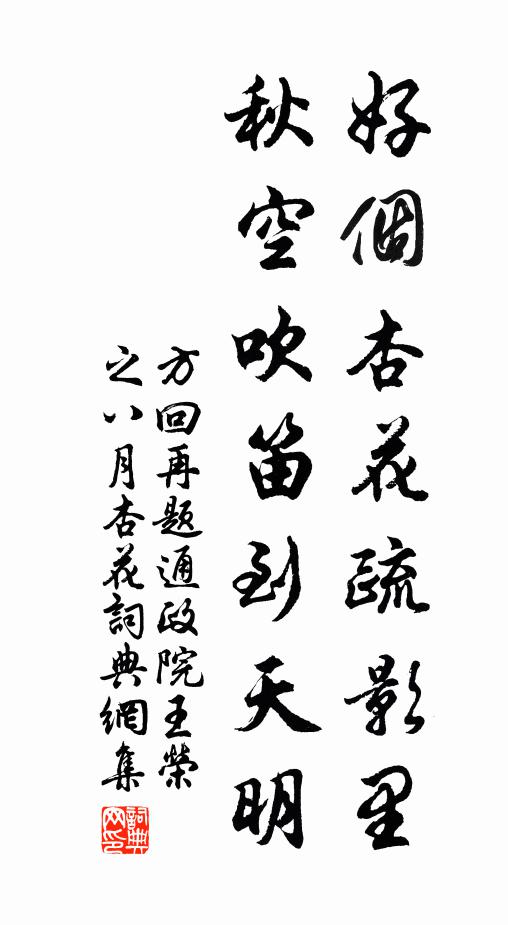 好個杏花疏影里
秋空吹笛到天明
方回再题通政院王榮
之八月杏花詞典網集
詞典
网印